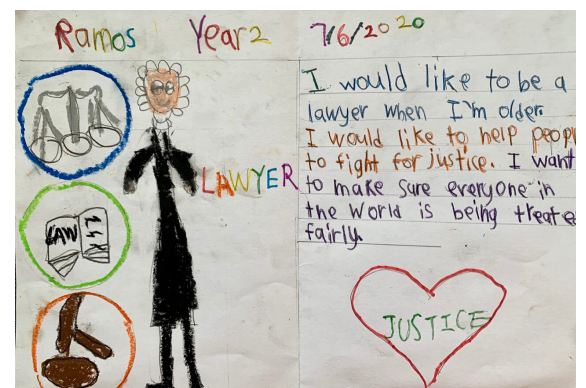 Ramos Year 2 7/6/2020
I would like to be a
lawyer when I'm older.
I would like to help peop
to fight for justice. I want
to make sure everyone in
the World is being treate
fairly.
LAWYER
LAW
JUSTICE